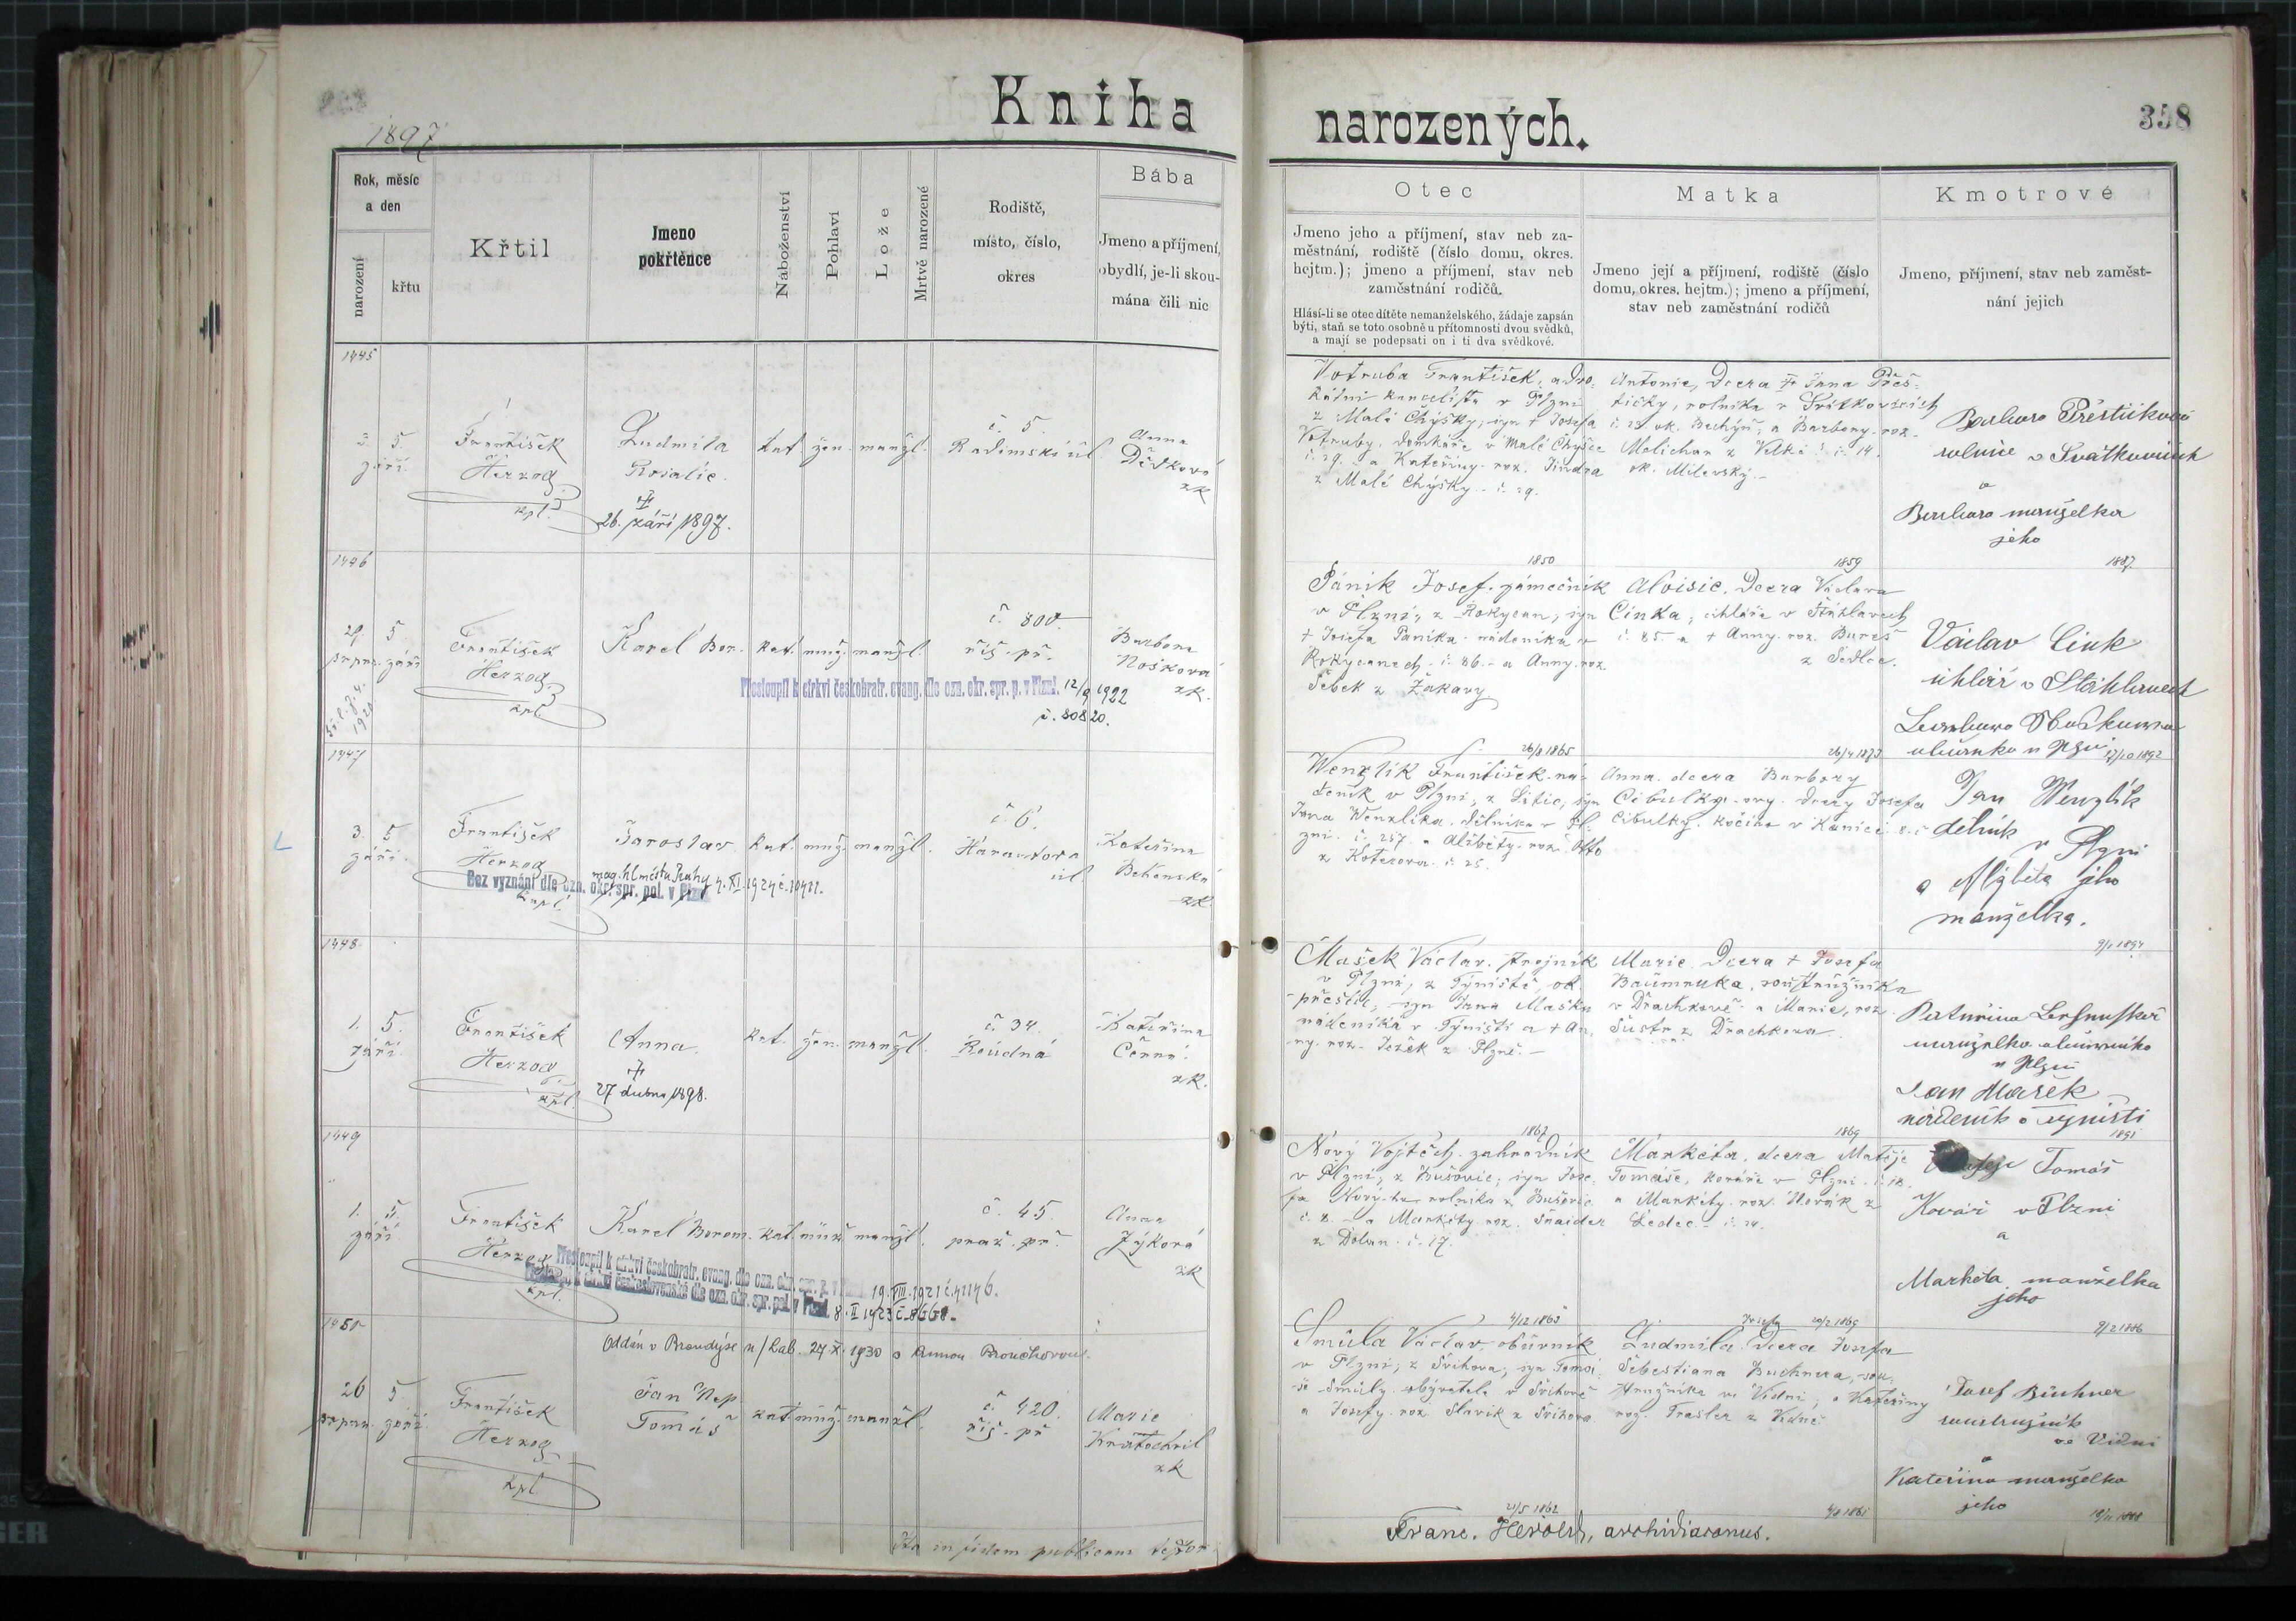 Kniha
narozených.
358
1897
Rok, měsíc
a den
narození
křtu
Křtil
Jmeno
pokřtěnce
Náboženství
Pohlaví
Lože
Mrtvě narozené
Rodiště,
místo, číslo,
okres
Bába
Jmeno a příjmení,
obydlí, je-li skou-
mána čili nic
Otec
Jmeno jeho a příjmení, stav neb za-
městnání, rodiště (číslo domu, okres.
hejtm.); jmeno a příjmení, stav neb
zaměstnání rodičů.
Hlásí-li se otec dítěte nemanželského, žádaje zapsán
býti, staň se toto osobně u přítomnosti dvou svědků,
a mají se podepsati on i ti dva svědkové.
Matka
Jmeno její a příjmení, rodiště (číslo
domu, okres. hejtm.); jmeno a příjmení,
stav neb zaměstnání rodičů
Kmotrové
Jmeno, příjmení, stav neb zaměst-
nání jejich
1445
5.
září
František
Herzog
kpl.
Ludmila
Rosalie.
26. září 1897.
kat. žen. manžl.
č. 5.
Radimského ul.
Anna
Dědková
zk
Votruba František, advo-
kátní kancelista v Plzni
z Malé Chýšky, syn † Josefa
Votruby, domkáře v Malé Chyšce
č. 29. a Kateřiny roz. Jindra
z Malé Chýšky č. 29.
Antonie, dcera † Jana Přeš-
tičky, rolníka v Svátkovicích
č. 22 ok. Bechyň, a Barbory roz.
Melichar z Velké č. 14.
ok. Milevský.
Barbora Přeštičková
rolnice v Svátkovicích
a
Barbora manželka
jeho
1850
1859
1887
1446
29.
srpna
5.
září
František
Herzog
kpl.
Karel Bor.
kat. muž. manžl.
č. 800
říš. př.
Barbora
Nosková
zk.
Přestoupil k církvi českobratr. evang. dle ozn. okr. spr. p. v Plzni. 12/9 1922
č. 80820.
Pánik Josef, zámečník
v Plzni, z Rokycan, syn
† Josefa Panika, nádeníka v
Rokycanech č. 86. a Anny roz.
Šebek z Žákavy
Aloisie, dcera Václava
Cinka, cihláře v Štáhlavech
č. 85 a † Anny roz. Bureš
z Sedlce.
Václav Cink
cihlář v Stáhlavech
26/8 1865
26/4 1873
17/10 1892
1447
3.
září
5
František
Herzog
kapl.
Jaroslav
kat. muž. manžl.
č. 6.
Harantova
ul.
Kateřina
Bekenská
zk.
Bez vyznání dle ozn. okr. spr. pol. v Plzni
mag. hl. města Prahy 4. XI. 1924
Wenzlík František, ná-
deník v Plzni, z Litic, syn
Jana Wenzlíka, dělníka v Pl-
zni č. 257. a Alžběty roz. Otto
z Koterova č. 25.
Anna, dcera Barbory
Cibulky, dcery Josefa
Cibulky, kočího v Kanici
Jan Wenzlík
dělník
v Plzni
a Alžběta jeho
manželka.
1448
1.
září
5.
František
Herzog
kpl.
Anna.
27 dubna 1898.
kat. žen. manžl.
č. 34.
Roudná
Kateřina
Černá
zk.
Mašek Václav, strojník
v Plzni, z Týniště, ok.
přeštic, syn Jana Maška
nádeníka v Týništi a † An-
ny roz. Ježek z Plzně.
Marie, dcera † Josefa
Baumruka, soustružníka
v Drachkově a Marie, roz.
Šustr z Drachkova.
manželka
v Plzni
Jan Mašek
nádeník v Týništi
1867
1869
1891
1449
1.
září
5.
František
Herzog
kpl.
Karel Borom.
kat. muž. manžl.
č. 45.
praž. př.
Anna
Zýková
zk
Přestoupil k církvi českobratr. evang. dle ozn. okr. spr. p. v Plzni 19. VIII. 1921 č. 41146.
Přestoupil k církvi československé dle ozn. okr. spr. pol. v Plzni 8. II 1923 č. 8668.
Nový Vojtěch, zahradník
v Plzni, z Bušovic, syn Jose-
fa Nového, rolníka z Bušovic
č. 8. a Markéty roz. Šnaider
z Dolan č. 17.
Markéta, dcera Matěje
Tomáše, kováře v Plzni č. 18.
a Markéty roz. Horák z
Ledec č. 24.
Matěje Tomáš
Kovář v Plzni
a
Markéta manželka
jeho
4/12 1863
Josefa 20/2 1869
9/2 1886
1450
Oddán v Brandýse n/Lab. 27. X. 1930 s Annou Prouchorovou.
26
srpna
5.
září
František
Herzog
kpl.
Jan Nep.
Tomáš
kat. muž. manžl.
č. 420.
říš. př
Marie
Kratochvil
zk
Smůla Václav, obuvník
v Plzni, z Švihova, syn Tomá-
še Smůly, obyvatele v Švihově
a Josefy roz. Slavik z Švihova
Ludmila, dcera Josefa
Šebestiana Buchnera, sou-
stružníka ve Vídni, a Kateřiny
roz. Trasler z Vídně
Josef Büchner
soustružník
ve Vídni
a
Kateřina manželka
jeho
21/5 1862
Ita in fidem publicam testor
Franc. Herold, archidiaconus.